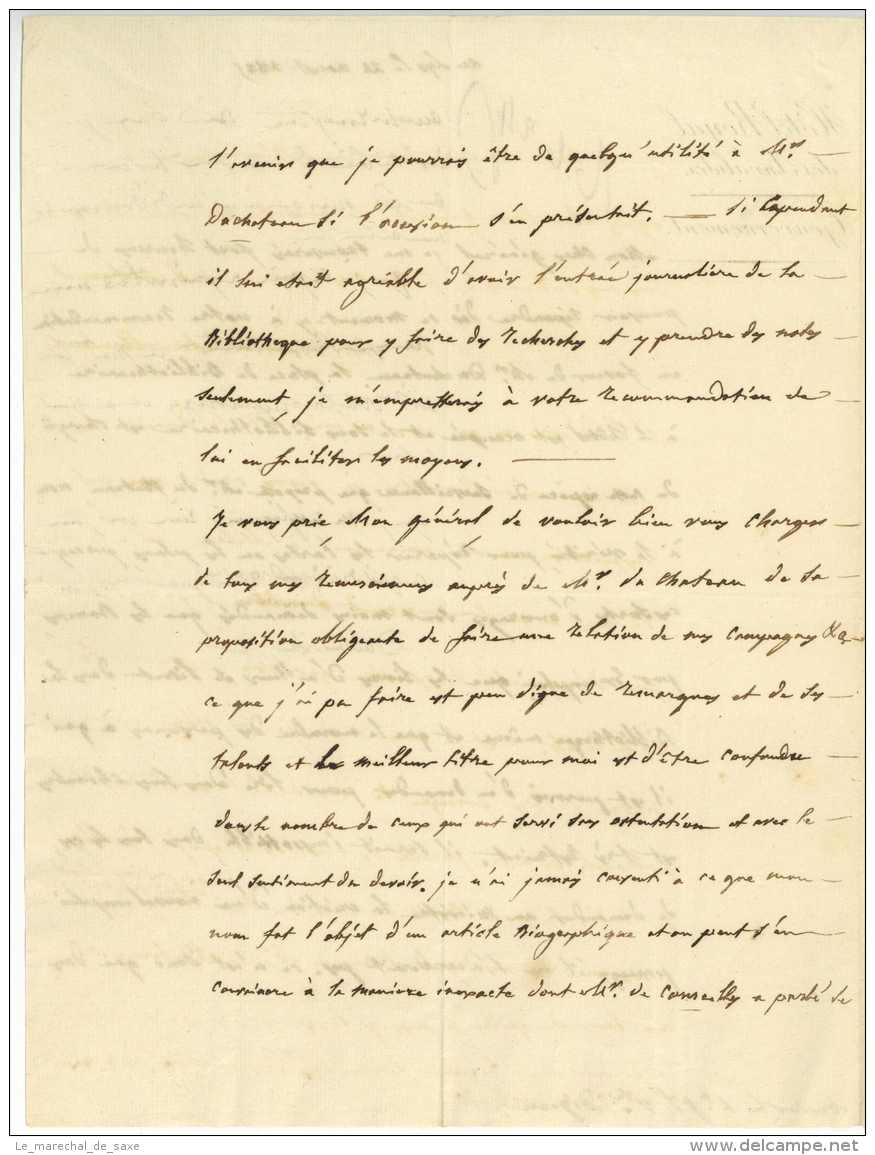 l'avenir que je pourrois être de quelqu'utilité à Mr.
Duchateau si l'occasion s'en présentait. — si cependant
il lui etoit agréable d'avoir l'entrée journalière de la
Bibliotheque pour y faire des recherches et y prendre des notes
seulement, je m'empresserois à votre recommandation de
lui en faciliter les moyens. —
Je vous prie Mon général de vouloir bien vous charger
de tous mes remerciemens auprès de Mr. du Chateau de sa
proposition obligeante de faire une relation de mes campagnes &a
ce que j'ai pu faire est peu digne de remarques et de ses
talents et le meilleur titre pour moi est d'être confondu
dans le nombre de ceux qui ont servi sans ostentation et avec le
seul sentiment du devoir. je n'ai jamais consenti à ce que mon
nom fut l'objet d'un article Biographique et on peut s'en
convaincre à la maniere inexacte dont Mr. de Courcelles a parlé de
Le_marechal_de_saxe
delcampe.net